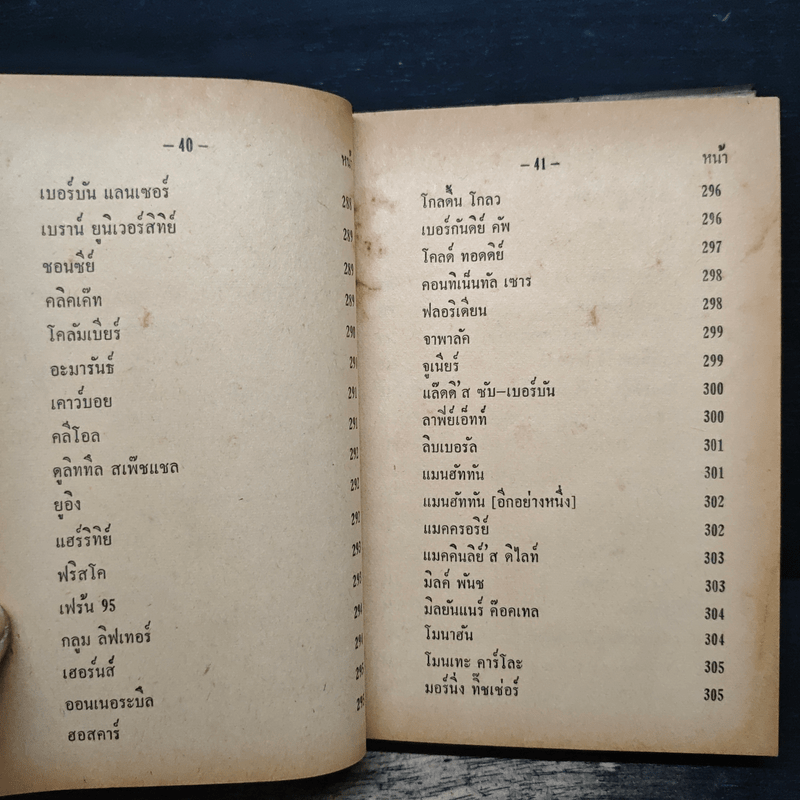 — 40 —
หน้า
เบอร์บัน แลนเซอร์ 288
เบราน์ ยูนิเวอร์สิทิย์ 289
ชอนซีย์ 289
คลิคเค๊ท 289
โคลัมเบียร์ 290
อะมารันธ์ 291
เคาว์บอย 291
คลีโอล 291
ดูลิททิล สเพ๊ชแชล 292
ยูอิง 292
แฮร์ริทิย์ 292
ฟริสโค 293
เฟร้น 95 293
กลูม ลิฟเทอร์ 294
เฮอร์นส์ 294
ออนเนอระบิล 295
ฮอสคาร์ 295
— 41 —
หน้า
โกลดิ้น โกลว 296
เบอร์กันดิย์ คัพ 296
โคลด์ ทอดดิย์ 297
คอนทิเน็นทัล เซาร 298
ฟลอริเดียน 298
จาพาลัค 299
จูเนียร์ 299
แล๊ดดี'ส ซับ—เบอร์บัน 300
ลาฟีย์เอ็ทท์ 300
ลิบเบอรัล 301
แมนฮัททัน 301
แมนฮัททัน [อีกอย่างหนึ่ง] 302
แมคครอรีย์ 302
แมคคินลีย์'ส ดิไลท์ 303
มิลค์ พันช 303
มิลยันแนร์ ค๊อคเทล 304
โมนาฮัน 304
โมนเทะ คาร์โละ 305
มอร์นิ่ง ทิ๊ชเช่อร์ 305